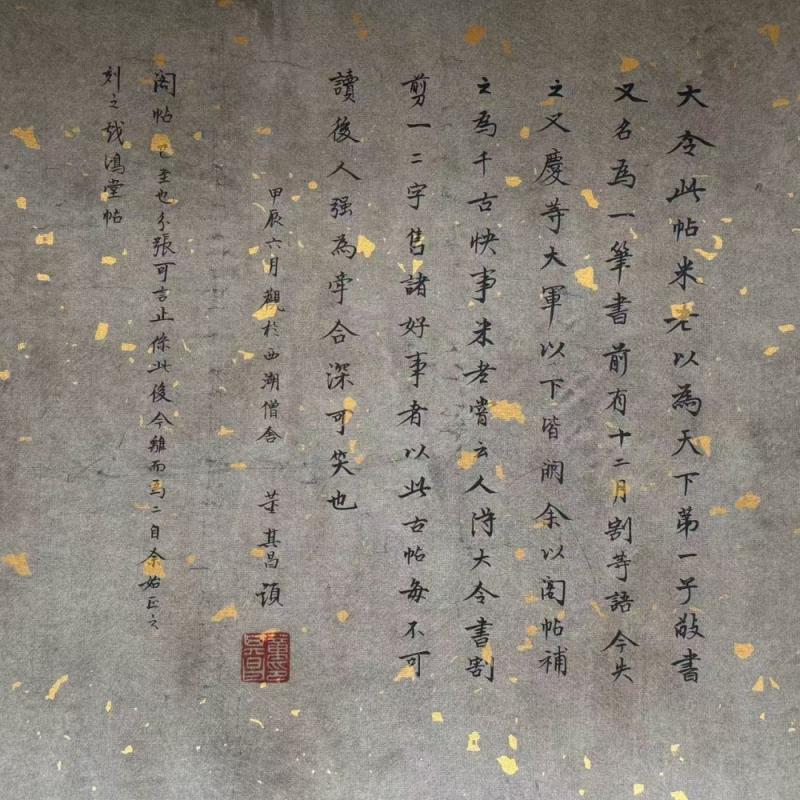 大令此帖米老以為天下第一子敬書
又名為一筆書前有十二月割等語今失
之又慶等大軍以下皆闕余以閣帖補
之為千古快事米老嘗云人得大令書割
剪一二字售諸好事者以此古帖每不可
讀後人强為牽合深可笑也
甲辰六月觀於西湖僧舍 董其昌題
閣帖已至也分張可言止條此後今離而為二自余始正之
刻之戏鴻堂帖